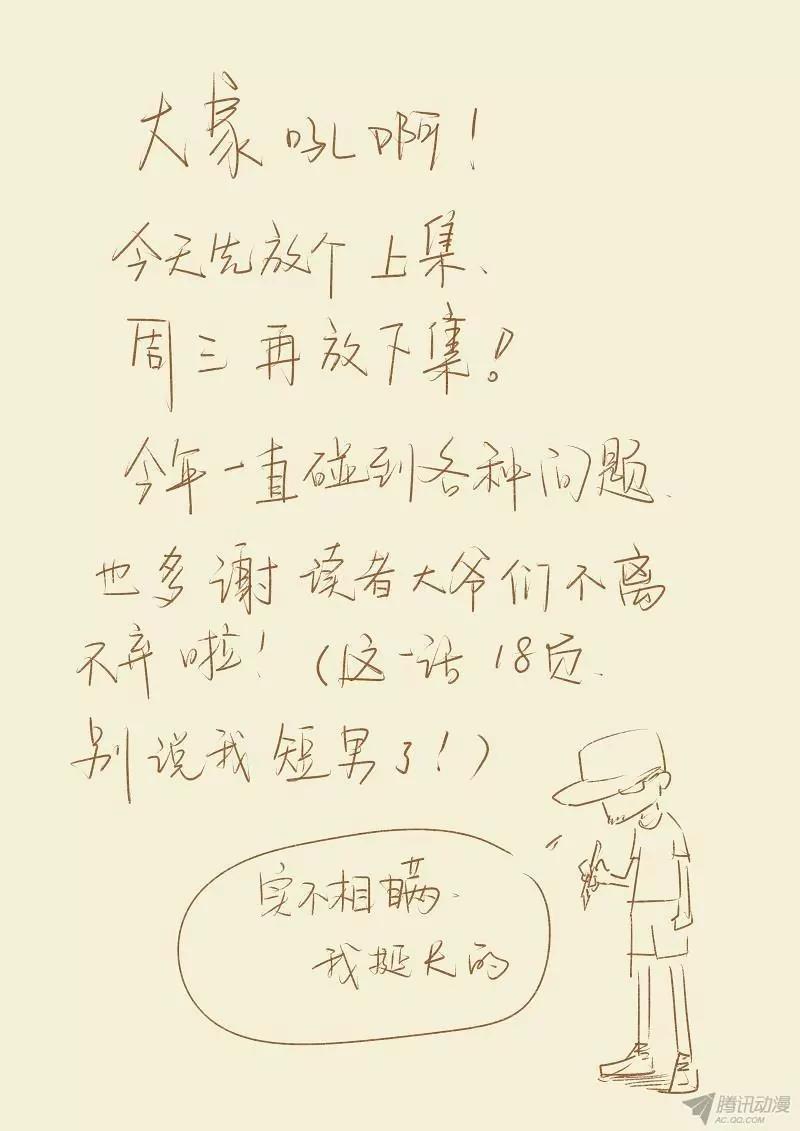 大家吼啊！
今天先放个上集、
周三再放下集！
今年一直碰到各种问题、
也多谢读者大爷们不离
不弃啦！（这一话18页、
别说我短男了！）
实不相瞒、
我挺长的
腾讯动漫
AC.QQ.COM